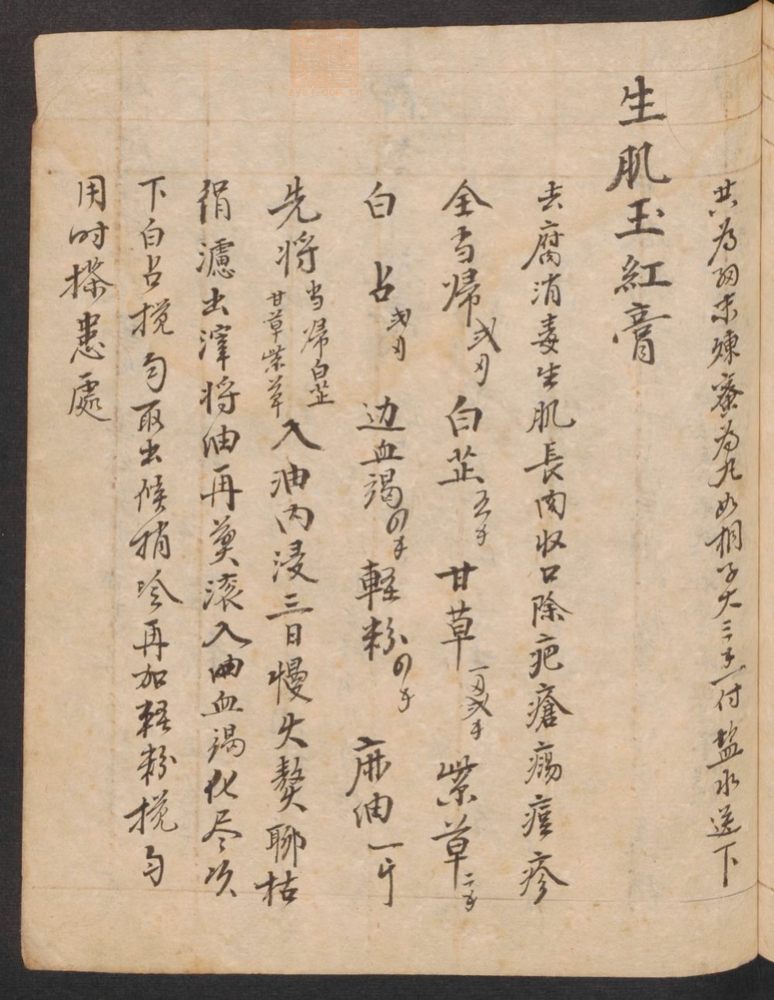 共为细末煉蜜为丸如桐子大三钱一付盐水送下
生肌玉紅膏
去腐消毒生肌長肉收口除疤瘡瘍痘疹
全当归弍両 白芷五钱 甘草一両弍钱 紫草二钱
白占弍両 边血竭四钱 輕粉四钱 麻油一斤
先将当归白芷甘草紫草入油内浸三日慢火熬聊枯
絹濾出滓将油再煎滚入血竭化尽次
下白占搅匀取出候稍冷再加輕粉搅匀
用时搽患處